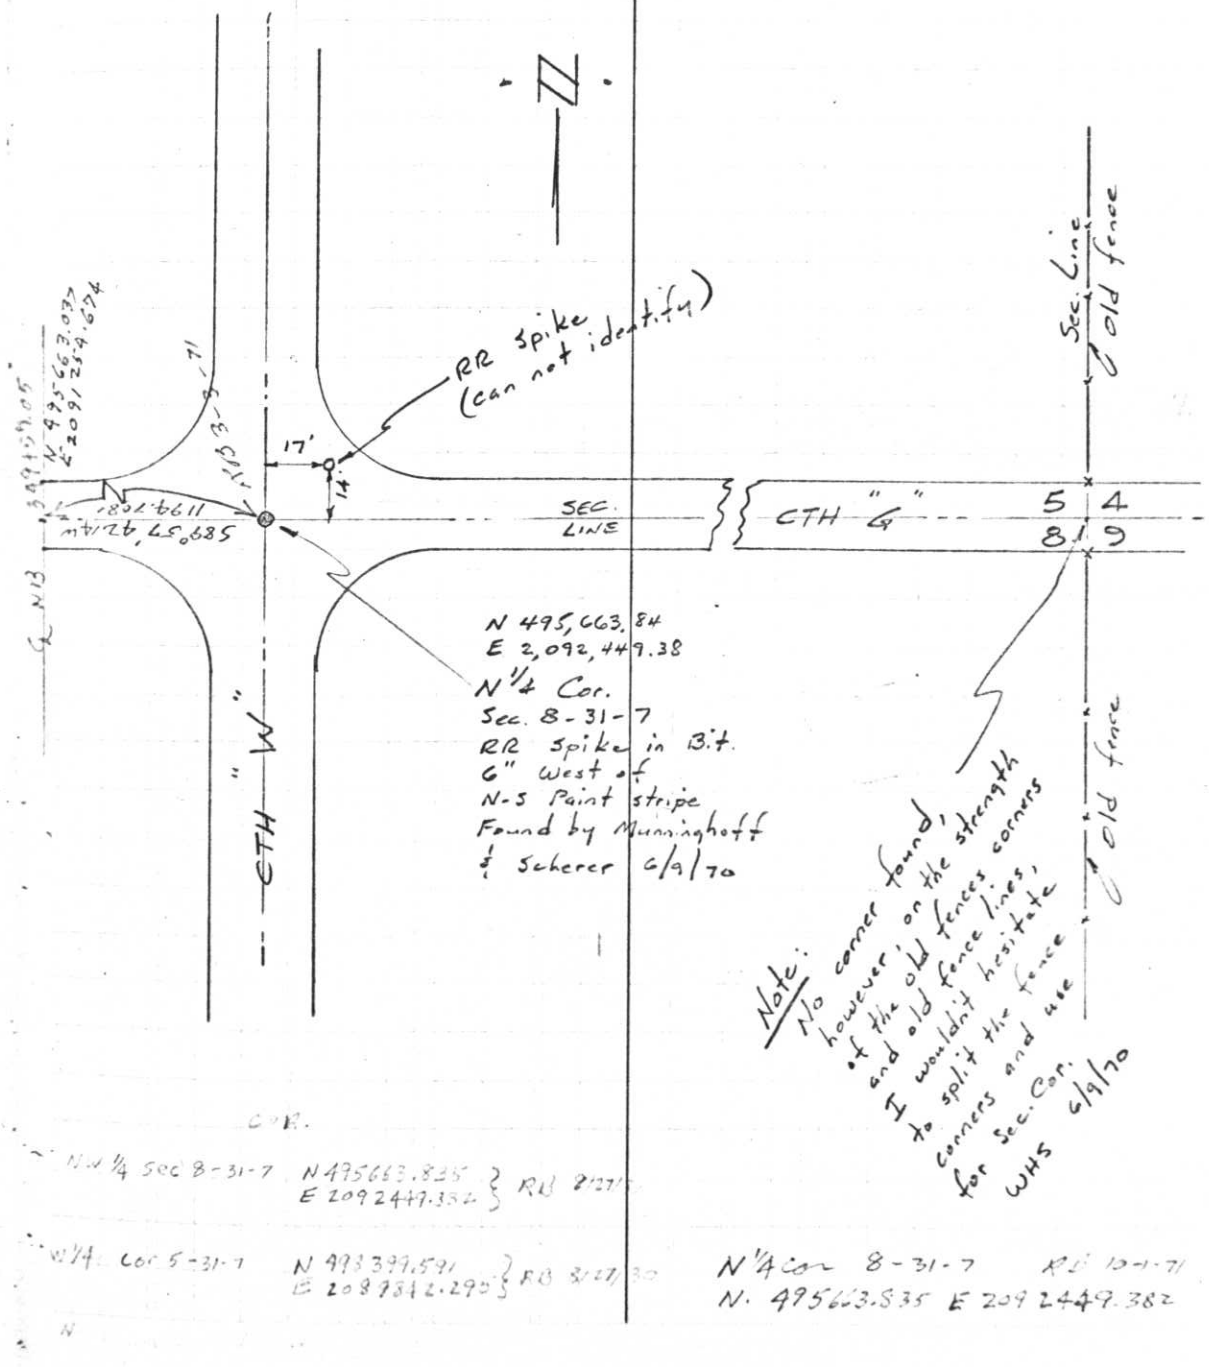 N
Sec. Line
Old fence
RR Spike
(can not identify)
N 495663.037
E 2091254.674
399+59.05
RB 3-3-71
17'
14'
1194.708'
S89°57'42.1"W
SEC.
LINE
CTH "G"
5 4
8 9
℄ NB
N 495,663.84
E 2,092,449.38
N 1/4 Cor.
Sec. 8-31-7
RR Spike in Bit.
6" West of
N-S Paint stripe
Found by Munninghoff
& Scherer 6/9/70
CTH "W"
Old fence
Note:
No corner found,
however, on the strength
of the old fences corners
and old fence lines,
I wouldn't hesitate
to split the fence
corners and use
for Sec. Cor.
WHS 6/9/70
COR.
NW 1/4 Sec 8-31-7 N 495663.835
E 2092449.382 } RB 8/27/
W 1/4 Cor 5-31-7 N 498399.591
E 2089842.295 } RB 8/27/
N 1/4 Cor 8-31-7 RB 10-1-71
N. 495663.835 E 2092449.382
N